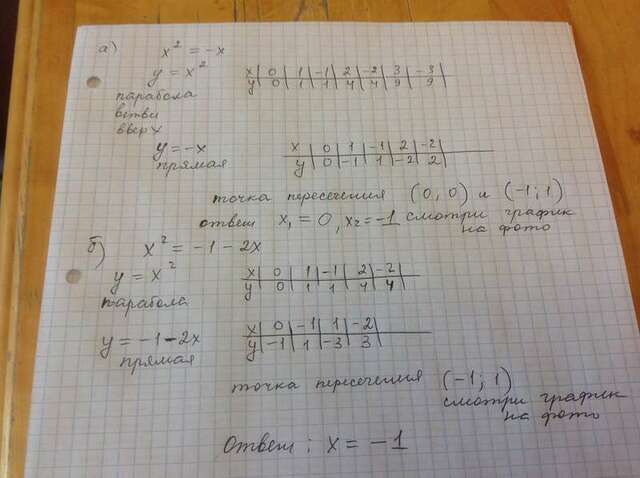 а) x² = -x
y = x²
x | 0 | 1 | -1 | 2 | -2 | 3 | -3
y | 0 | 1 | 1 | 4 | 4 | 9 | 9
парабола
ветви
вверх
y = -x
прямая
x | 0 | 1 | -1 | 2 | -2
y | 0 | -1 | 1 | -2 | 2
точка пересечения (0, 0) и (-1; 1)
ответ x₁ = 0, x₂ = -1 смотри график
на фото
б) x² = -1 - 2x
y = x²
парабола
x | 0 | 1 | -1 | 2 | -2
y | 0 | 1 | 1 | 4 | 4
y = -1 - 2x
прямая
x | 0 | -1 | 1 | -2
y | -1 | 1 | -3 | 3
точка пересечения (-1; 1)
смотри график
на фото
Ответ: x = -1